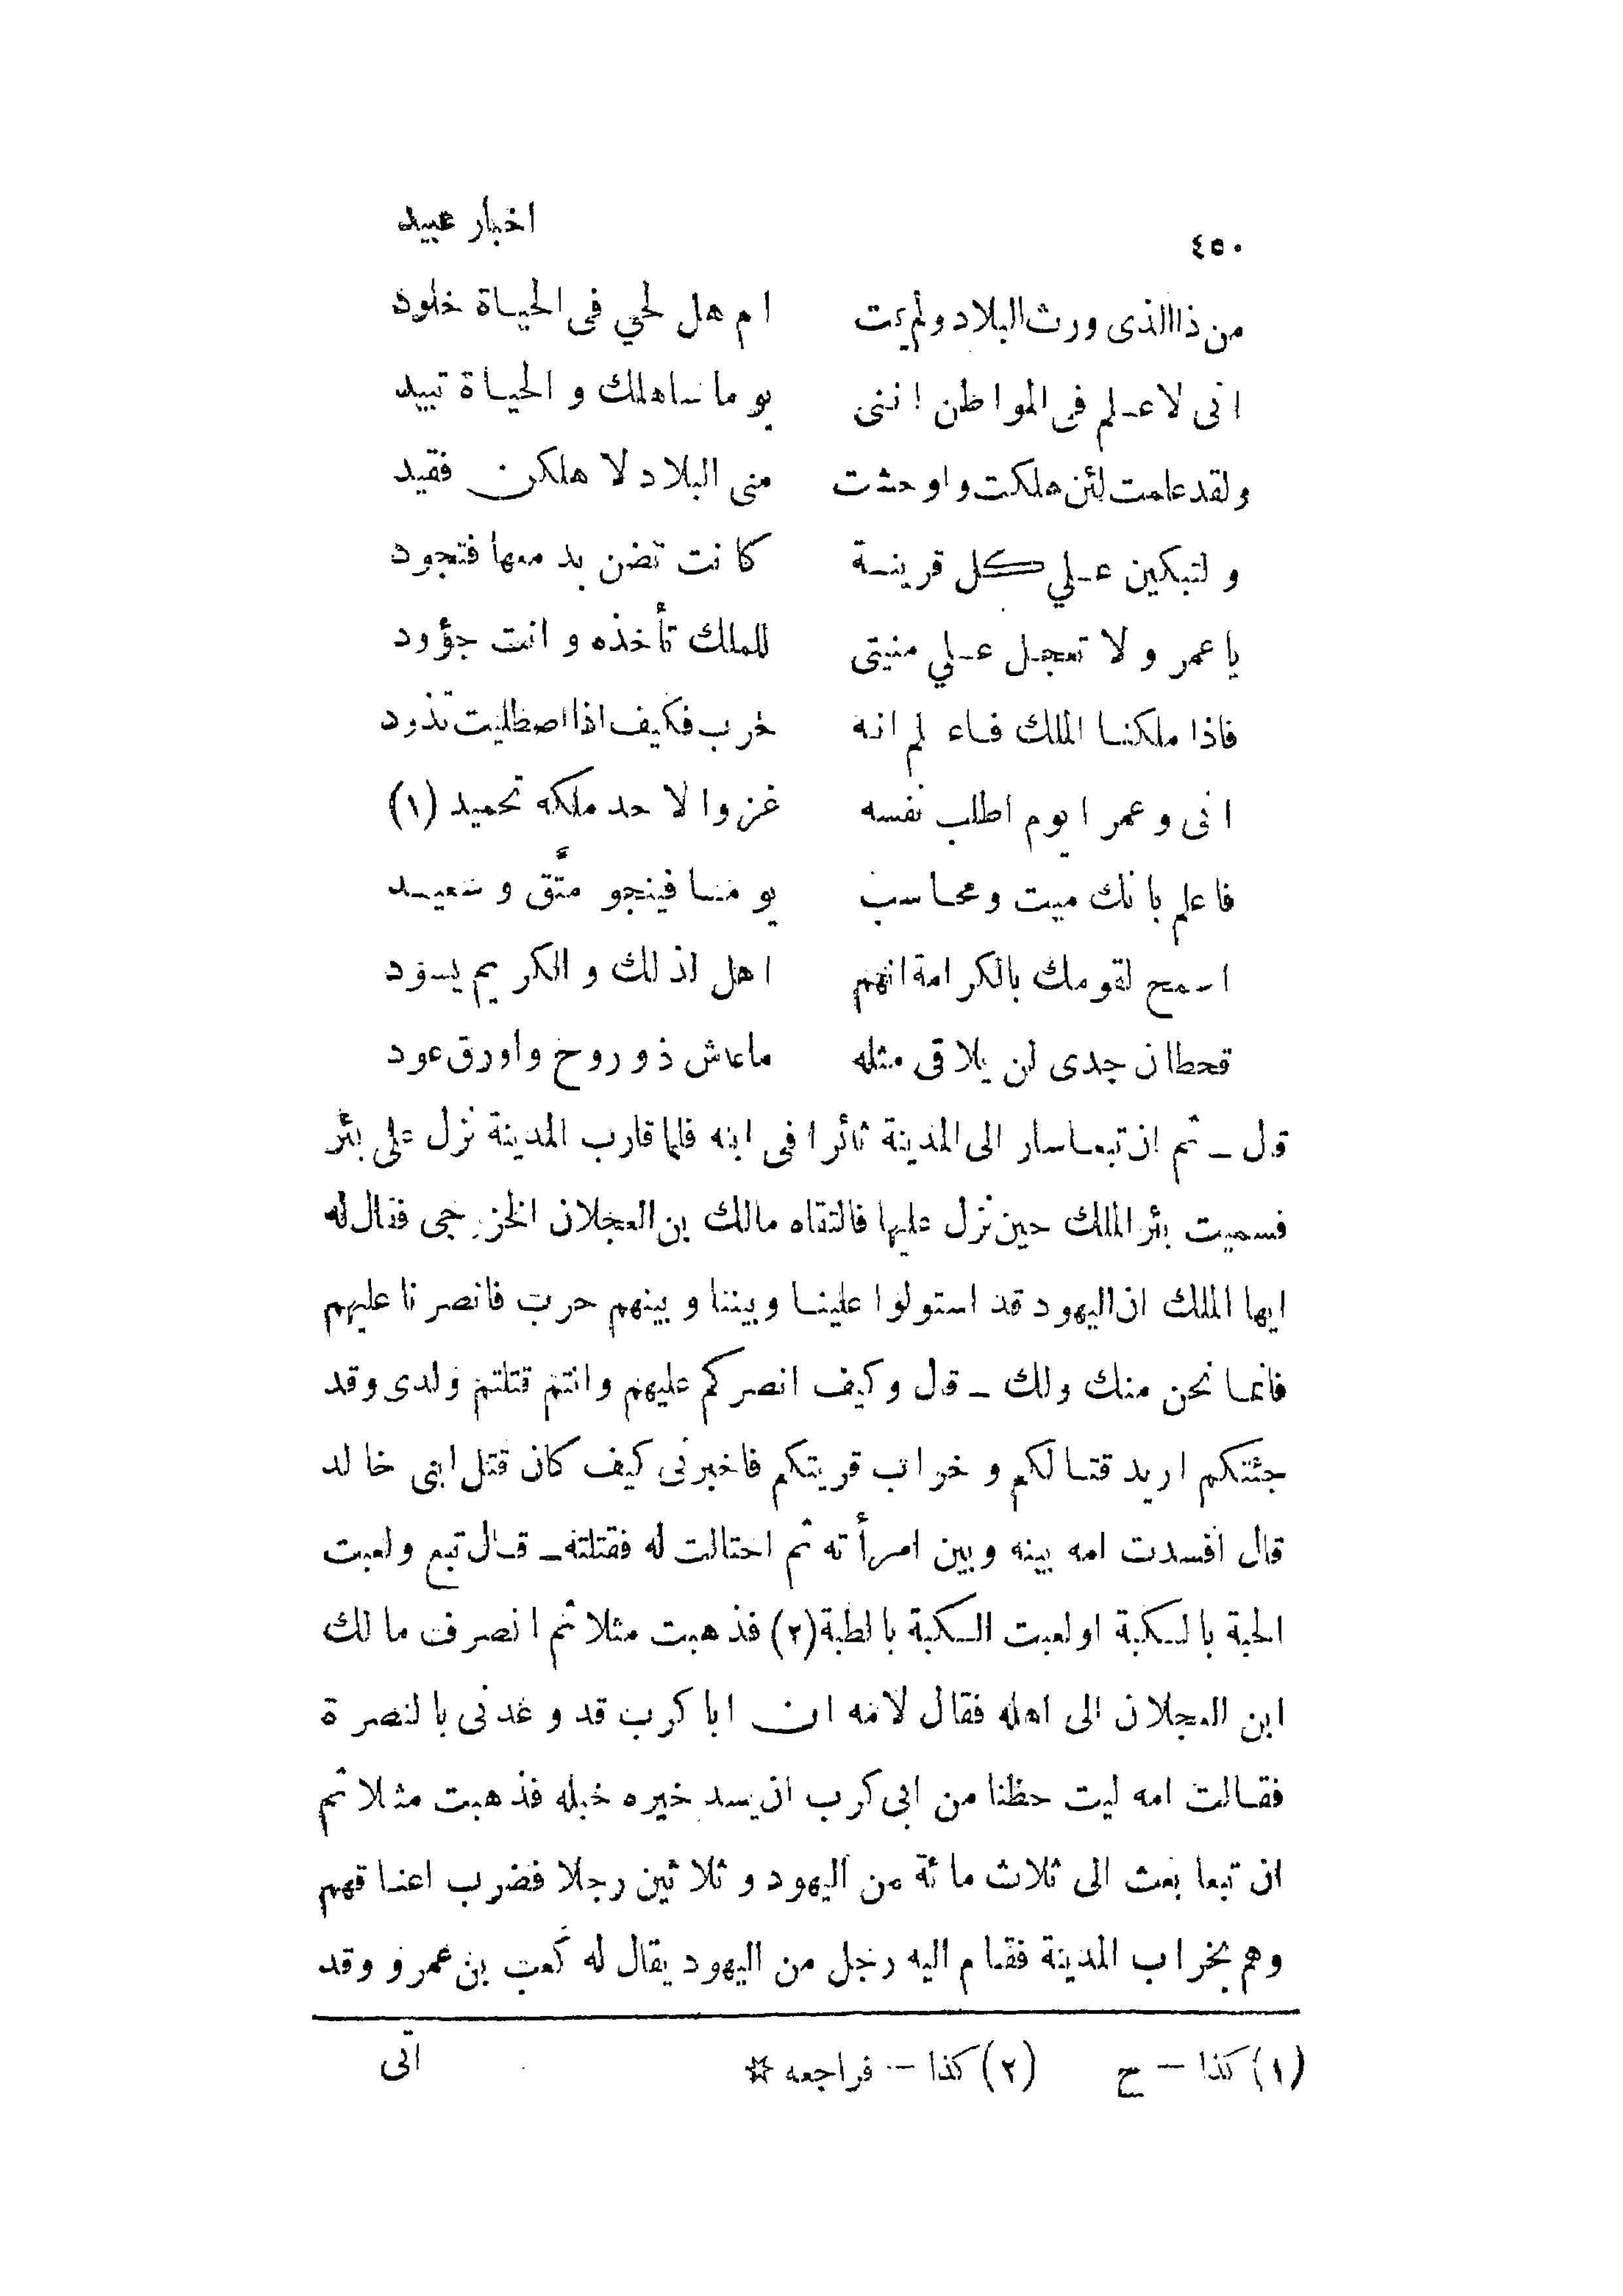 ٤٥٠ اخبار عبيد
من ذا الذى ورث البلاد ولم يمت ام هل لحي فى الحياة خلود
انى لاعلم فى المواطن اننى يوما ساهلك و الحياة تبيد
ولقد علمت لئن هلكت واوحشت منى البلاد لا هلكن فقيد
و لتبكين علي كل قرينة كانت تضن بدمعها فتجود
يا عمر و لا تعجل علي منيتى للملك تأخذه و انت جؤود
فاذا ملكنا الملك فاء لم انه خرب فكيف اذا اصطليت تذود
انى و عمرا يوم اطلب نفسه غزوا لا حد ملكه تحميد (١)
فاعلم بانك ميت ومحاسب يوما فينجو متَّق و سعيد
اسمح لقومك بالكرامة انهم اهل لذلك و الكريم يسود
قحطان جدى لن يلاقى مثله ما عاش ذو روح واورق عود
قال ــ ثم ان تبعا سار الى المدينة ثائرا فى ابنه فلما قارب المدينة نزل على بئر
فسميت بئر الملك حين نزل عليها فالتقاه مالك بن العجلان الخزرجى فقال له
ايها الملك ان اليهود قد استولوا علينا وبيننا وبينهم حرب فانصرنا عليهم
فانما نحن منك ولك ــ قال وكيف انصركم عليهم وانتم قتلتم ولدى وقد
جئتكم اريد قتالكم و خراب قريتكم فاخبرنى كيف كان قتل ابنى خالد
قال افسدت امه بينه وبين امرأته ثم احتالت له فقتلته ــ قال تبع ولعبت
الحبة بالسكبة او لعبت السكبة بالطبة (٢) فذهبت مثلا ثم انصرف مالك
ابن العجلان الى اهله فقال لامه ان ابا كرب قد وعدنى بالنصرة
فقالت امه ليت حظنا من ابى كرب ان يسد خيره خبله فذهبت مثلا ثم
ان تبعا بعث الى ثلاث مائة من اليهود و ثلاثين رجلا فضرب اعناقهم
وهم بخراب المدينة فقام اليه رجل من اليهود يقال له كعب بن عمرو وقد
(١) كذا – ح (٢) كذا – فراجعه ☆ اتى